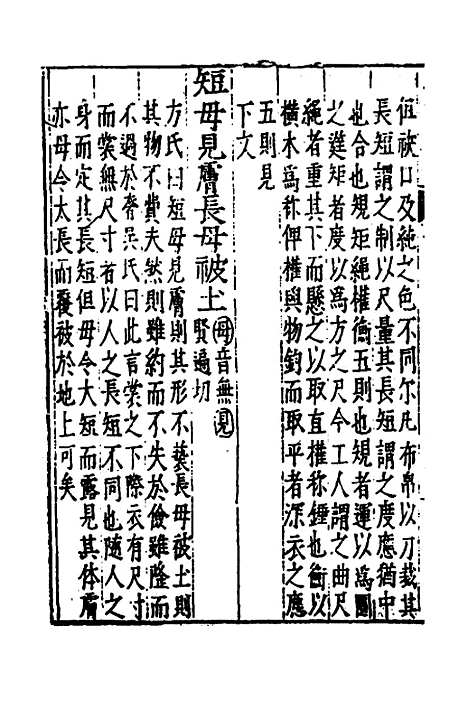 但袂口及純之色不同尔凡布帛以刀裁其
長短謂之制以尺量其長短謂之度應猶中
也合也規矩繩權衡五則也規者運以為圓
之筳矩者度以為方之尺今工人謂之曲尺
繩者重其下而懸之以取直權称錘也衡以
橫木為称俾權與物鈞而取平者深衣之應
五則見
下文
短毋見膚長毋被土毋音無見
賢遍切
方氏曰短毋見膚則其形不褻長毋被土則
其物不費夫然則雖約而不失於儉雖隆而
不過於奢吳氏曰此言裳之下際衣有尺寸
而裳無尺寸者以人之長短不同也随人之
身而定其長短但毋令大短而露見其体膚
亦毋令太長而覆被於地上可矣